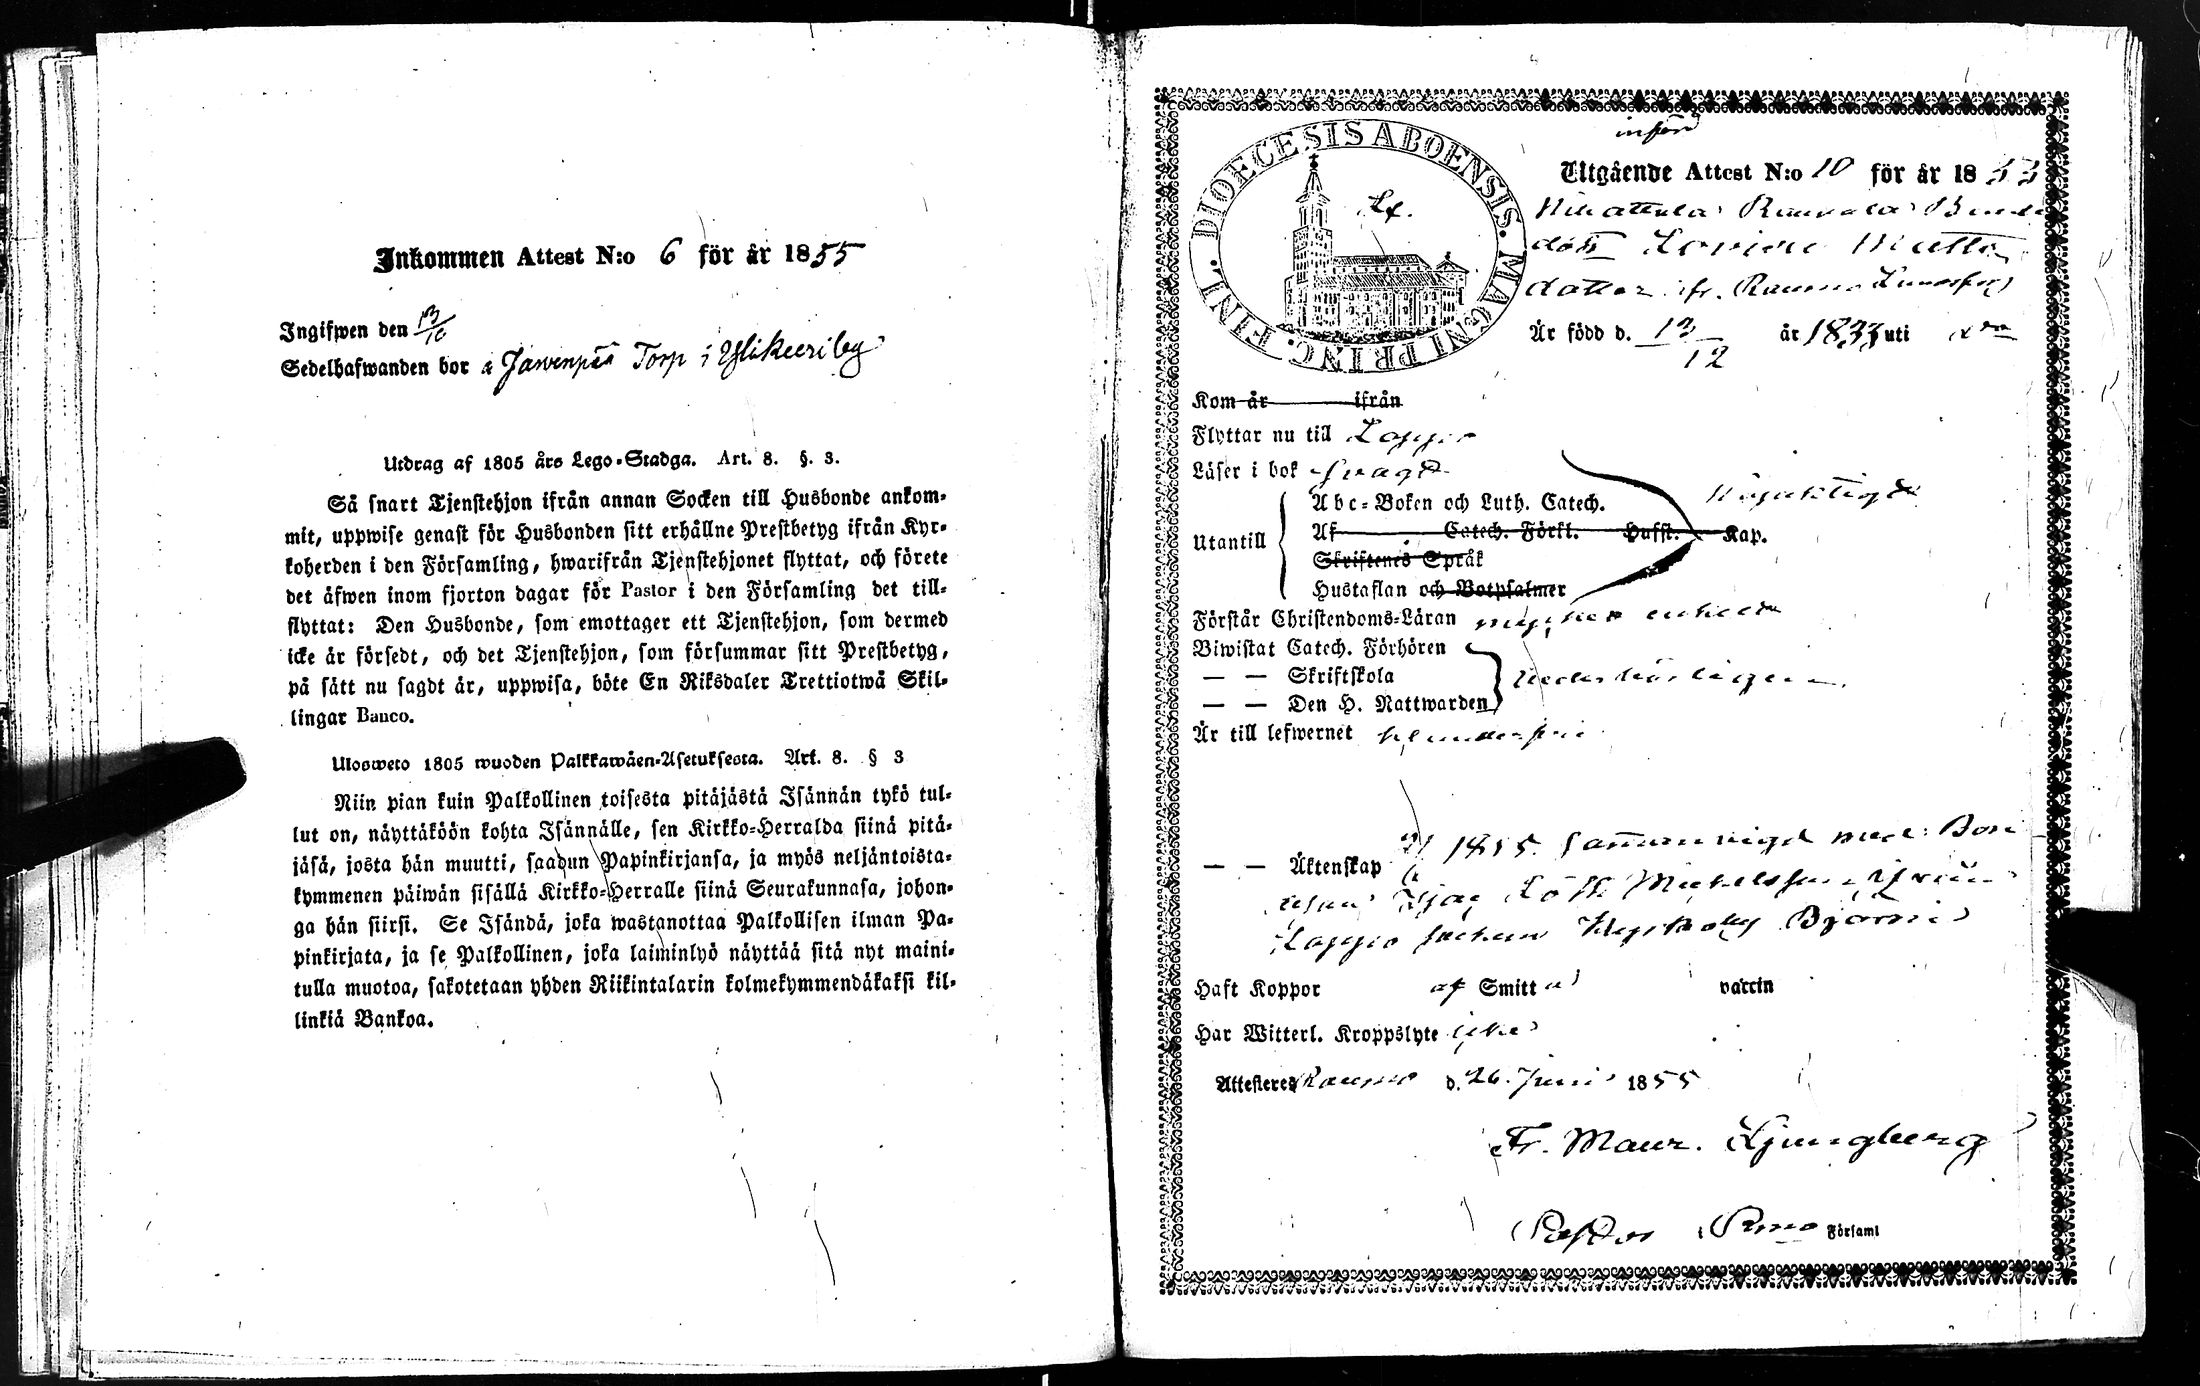 Inkommen Attest N:o 6 för år 1855
Ingifwen den 13/10
Sedelhafwanden bor å Jäwenpää Torp i Ylikeeri by
Utdrag af 1805 års Lego-Stadga. Art. 8. §. 3.
Så snart Tjenstehjon ifrån annan Socken till Husbonde ankom-
mit, uppwise genast för Husbonden sitt erhållne Prestbetyg ifrån Kyr-
koherden i den Församling, hwarifrån Tjenstehjonet flyttat, och förete
det äfwen inom fjorton dagar för Pastor i den Församling det till-
flyttat: Den Husbonde, som emottager ett Tjenstehjon, som dermed
icke är försedt, och det Tjenstehjon, som försummar sitt Prestbetyg,
på sätt nu sagdt är, uppwisa, böte En Riksdaler Trettiotwå Skil-
lingar Banco.
Ulosweto 1805 wuoden Palkkawäen-Asetuksesta. Art. 8. § 3
Niin pian kuin Palkollinen toisesta pitäjästä Isännän tykö tul-
lut on, näyttäköön kohta Isännälle, sen Kirkko-Herralda siinä pitä-
jäsä, josta hän muutti, saadun Papinkirjansa, ja myös neljäntoista-
kymmenen päiwän sisällä Kirkko-Herralle siinä Seurakunnasa, johon-
ga hän siirsi. Se Isändä, joka wastanottaa Palkollisen ilman Pa-
pinkirjata, ja se Palkollinen, joka laiminlyö näyttää sitä nyt maini-
tulla muotoa, sakotetaan yhden Riikintalarin kolmekymmendäkaksi kil-
linkiä Bankoa.
DIOECESIS ABOENSIS. MAGNI PRINC. FINL.
införd
Utgående Attest N:o 10 för år 1855
Bonde
Lovisa Matts
dotter fr. Raumo
Är född d. 13/12 år 1833 uti
Kom år ifrån
Flyttar nu till Lappo
Läser i bok svagt
Abc-Boken och Luth. Catech.
Utantill
Af Catech. Förkl. Husst. Kap.
Skriftenes Språk
Hustaflan och Botpsalmer
Förstår Christendoms-Läran mycket enkelt
Biwistat Catech. Förhören
— — Skriftskola
— — Den H. Nattwarden
Är till lefwernet
— — Äktenskap 1855 Sammanvigd med Bon
Lappo socken Bjorni
Haft Koppor af Smitta vaccin
Har Witterl. Kroppslyte icke
Attesteres Raumo d. 26 Juni 1855
Fr. Maur. Ljungberg
Pastor i Rmo Församl